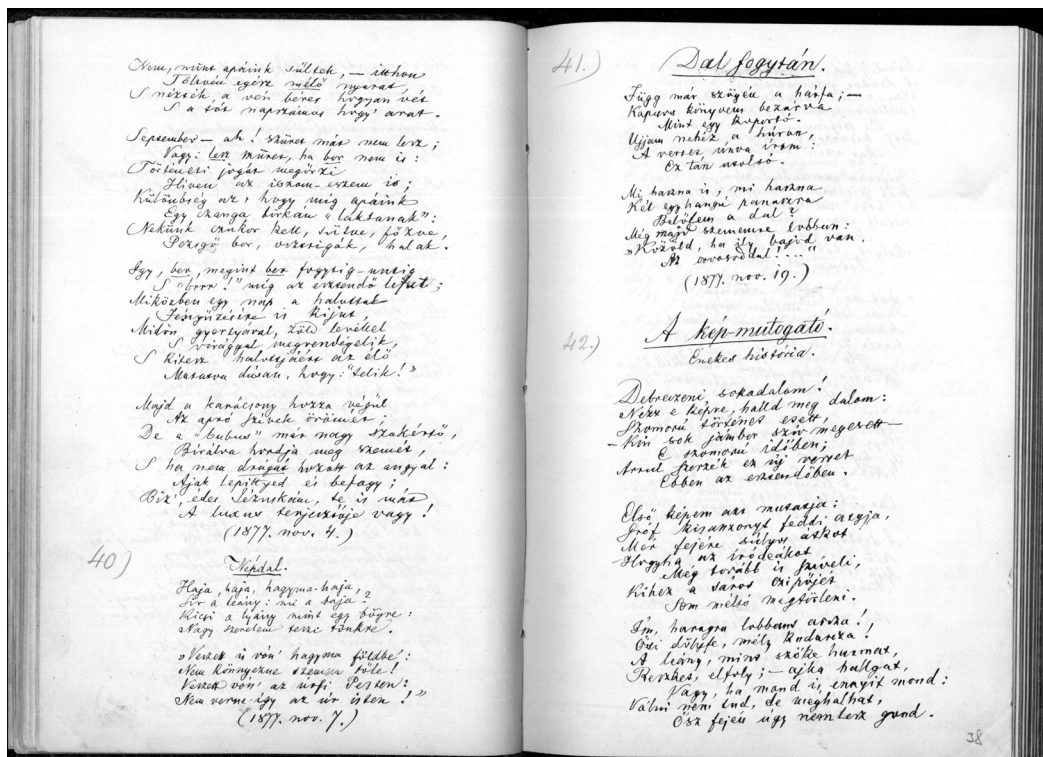 Nem, mint apáink sültek, — itthon
Tölteni egész mélő nyarat,
S nézték a vén béres hogyan vét
S a tót napszámos hogy' arat.
September — ah! szüret már nem lesz;
Vagy: lesz szüret, ha bor nem is:
Történeti jogát megőrzi
Híven az iszom-eszem is;
Különbség az, hogy míg apáink
Egy czanga birkán "laktanak":
Nekünk czukor kell, sütve, főzve,
Pezsgő bor, vizeczigák, halak.
Igy, ber, megint ber fogytig-untig
S "brrr!" míg az esztendő lefut;
Miközben egy nap a halottak
Fényűzésére is kijut,
Midőn gyertyával, zöld levéllel
S virággal megvendégelik,
S kitesz halottjáért az élő
Mutatva dúsan, hogy: "telik!"
Majd a karácsony hozza végül
Az apró szívek örömét;
De a "bubus" már nagy szakértő,
Bírálva hordja meg szemét,
S ha nem drágát hozott az angyal:
Ajak lepityed és befagy;
Biz' édes Jézuskám, te is már
A luxus terjesztője vagy!
(1877. nov. 4.)
40)
Népdal.
Haja, haja, hagyma-haja,
Sír a leány: mi a baja?
Kicsi a lyány mint egy bögre:
Nagy szerelem teszi tönkre.
"Veszett vón' hagyma földbe:
Nem könnyezne szemem tőle!
Veszett vón' az úrfi Pesten:
Nem verne így az úr isten!"
(1877. nov. 7.)
41.)
Dal fogytán.
Függ már szögén a hárfa; —
Kapcsos könyvem bezárva
Mint egy koporsó.
Ujjam nehéz a húron,
A verset únva írom:
Ez tán utolsó.
Mi haszna is, mi haszna
Két egyhangú panaszra
Belőlem a dal?
Még majd szememre lobban:
"Közöld, ha ily bajod van,
Az orvosoddal!..."
(1877. nov. 19.)
42.)
A kép-mutogató.
Énekes história.
Debreczeni sokadalom!
Nézz e képre, halld meg dalom:
Szomorú történet esett,
— Kin sok jámbor szív megesett —
E szomorú időben;
Arrul szerzék ez új verset
Ebben az esztendőben.
Első képem azt mutatja:
Gróf kisasszonyt feddi atyja,
Mér fejére súlyos átkot
Hogyha az íródeákot
Még tovább is szíveli,
Kihez a sáros czipőjét
Sem méltó megtörleni.
Im, haragra lobbant arcza!
Ősi dölyfe, mély kudarcza!
A leány, mint szőke harmat,
Reszket, elfoly; — ajka hallgat,
Vagy, ha mond is, ennyit mond:
Válni nem tud, de meghalhat,
Ősz fején úgy nem lesz gond.
38